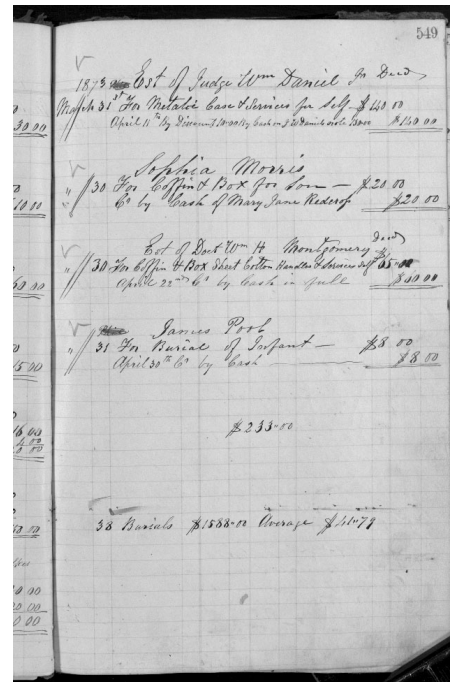 549
1873 Est of Judge Wm Daniel Jr Decd
March 31st For Metalic Case & Services for Self $140 00
April 11th By Discount 10.00 By Cash on J W Daniels note $140 00
Sophia Morris
" 30 For Coffin & Box for Son — $20 00
Cr by Cash of Mary Jane $20 00
Est of Doct Wm H Montgomery Decd
" 30 For Coffin & Box Short Cotton Handles & Services Self $65.00
April 22nd Cr by Cash in full
James Pool
" 31 For Burial of Infant — $8 00
April 30th Cr by Cash $8 00
$233.00
38 Burials $1588.00 Average $41.79
30 00
10 00
60 00
15 00
16 00
4 00